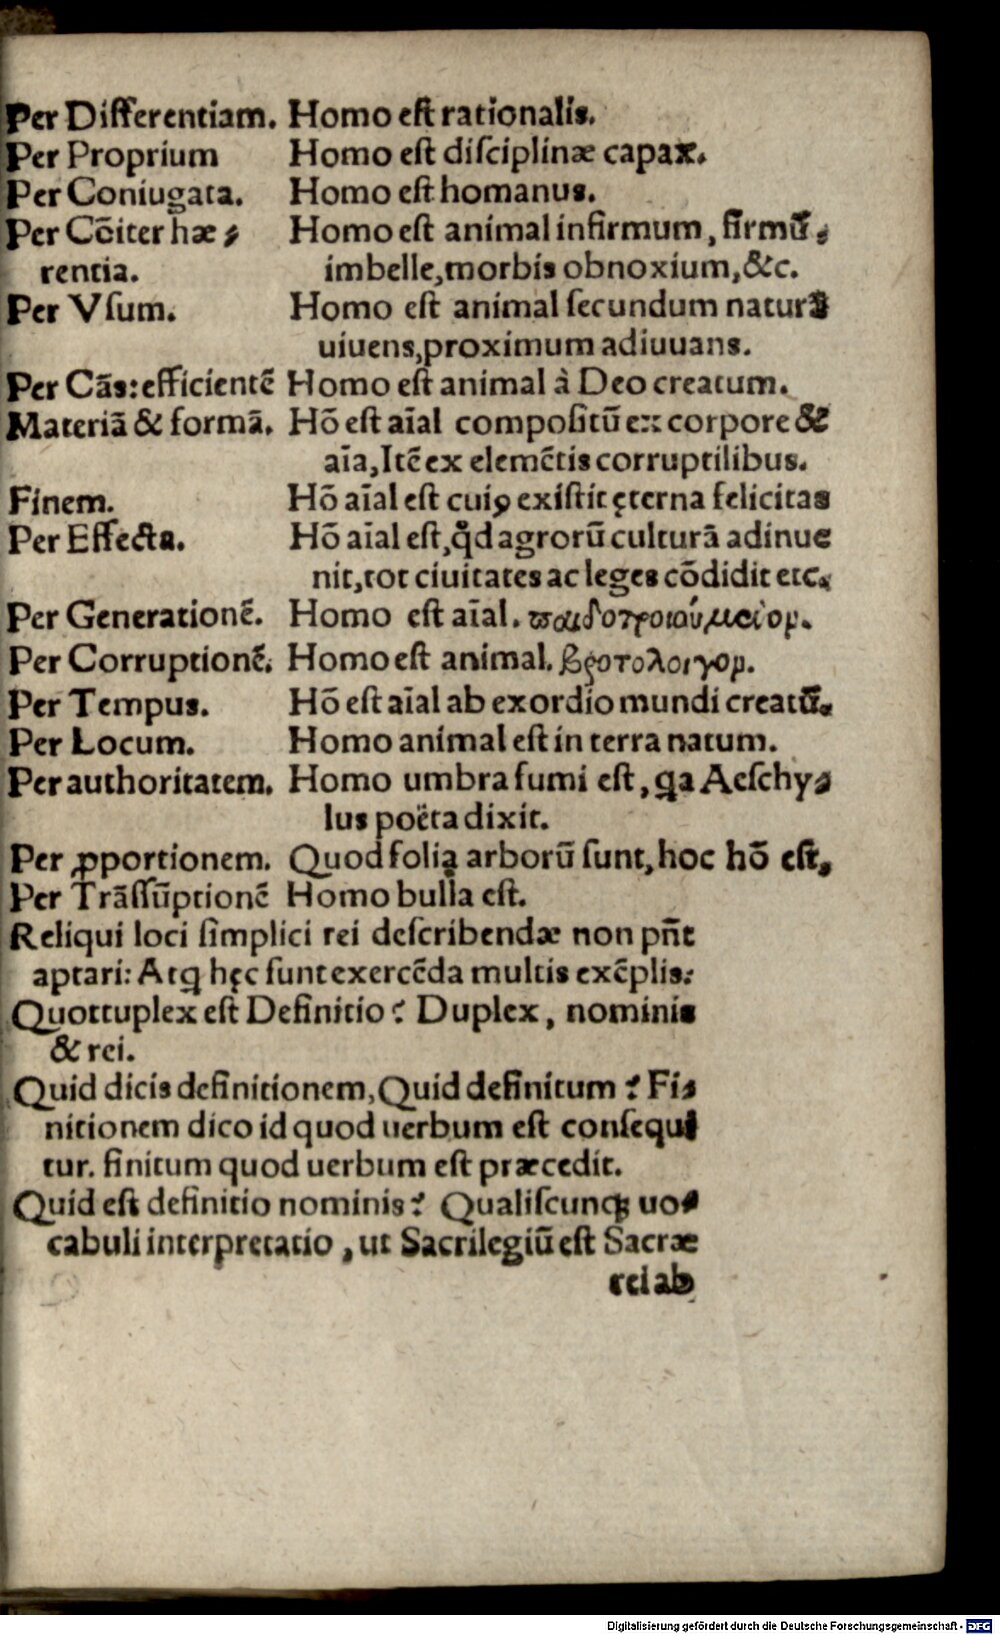 Per Differentiam. Homo eſt rationalis.
Per Proprium Homo eſt diſciplinæ capax.
Per Coniugata. Homo eſt homanus.
Per Cõiter hæ⸗ Homo eſt animal infirmum, firmũ,
rentia. imbelle, morbis obnoxium, &c.
Per Vſum. Homo eſt animal ſecundum naturã
uiuens, proximum adiuuans.
Per Cãs: efficientẽ Homo eſt animal à Deo creatum.
Materiã & formã. Hõ eſt aĩal compoſitũ ex corpore &
aĩa, Itẽ ex elemẽtis corruptilibus.
Finem. Hõ aĩal eſt cui ꝓ exiſtit ęterna felicitas
Per Effecta. Hõ aĩal eſt, qd agrorũ culturã adinue
nit, tot ciuitates ac leges cõdidit etc.
Per Generationẽ. Homo eſt aĩal.
Per Corruptionẽ. Homo eſt animal. βροτολοιγον.
Per Tempus. Hõ eſt aĩal ab exordio mundi creatũ.
Per Locum. Homo animal eſt in terra natum.
Per authoritatem. Homo umbra fumi eſt, qa Aeſchy⸗
lus poëta dixit.
Per ꝓportionem. Quod folia arborũ ſunt, hoc hõ eſt,
Per Trãſſũptionẽ Homo bulla eſt.
Reliqui loci ſimplici rei deſcribendæ non pñt
aptari: Atq̃ hęc ſunt exercẽda multis exẽplis:
Quottuplex eſt Definitio? Duplex, nominis
& rei.
Quid dicis definitionem, Quid definitum? Fi⸗
nitionem dico id quod uerbum eſt conſequi
tur. finitum quod uerbum eſt præcedit.
Quid eſt definitio nominis? Qualiſcunqꝫ uo⸗
cabuli interpretatio, ut Sacrilegiũ eſt Sacræ
rei ab
Digitalisierung gefördert durch die Deutsche Forschungsgemeinschaft - DFG